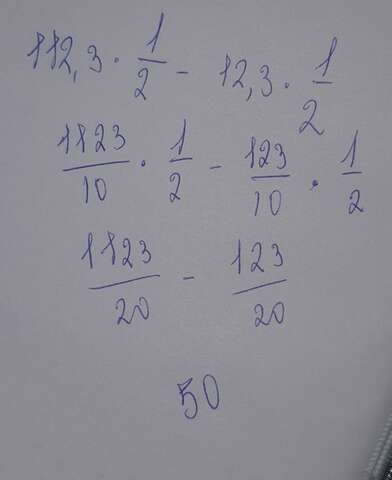 112,3 · 1/2 - 12,3 · 1/2
1123/10 · 1/2 - 123/10 · 1/2
1123/20 - 123/20
50